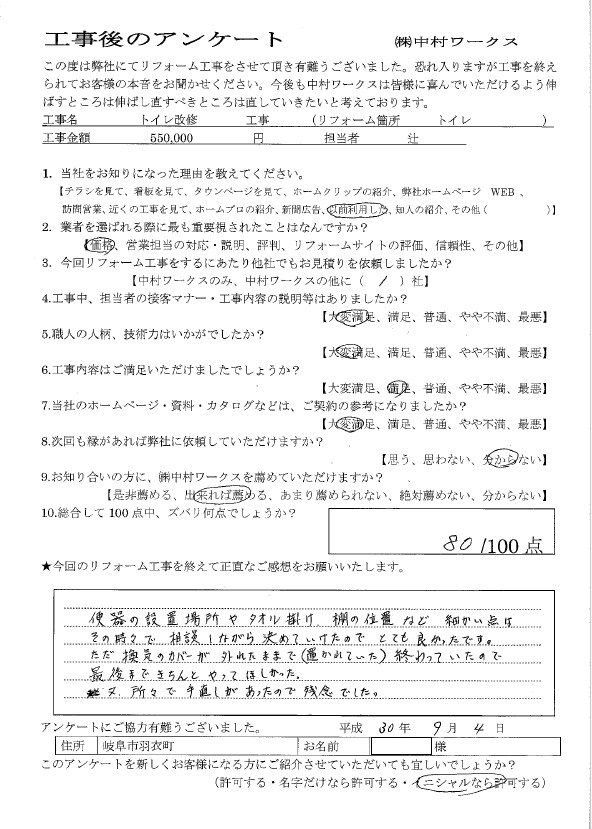 工事後のアンケート ㈱中村ワークス
この度は弊社にてリフォーム工事をさせて頂き有難うございました。恐れ入りますが工事を終え
られてお客様の本音をお聞かせください。今後も中村ワークスは皆様に喜んでいただけるよう伸
ばすところは伸ばし直すべきところは直していきたいと考えております。
工事名 トイレ改修 工事 (リフォーム箇所 トイレ )
工事金額 550,000 円 担当者 辻
1. 当社をお知りになった理由を教えてください。
【チラシを見て、看板を見て、タウンページを見て、ホームクリップの紹介、弊社ホームページ WEB、
訪問営業、近くの工事を見て、ホームプロの紹介、新聞広告、以前利用した、知人の紹介、その他( )】
2. 業者を選ばれる際に最も重要視されたことはなんですか？
【価格、営業担当の対応・説明、評判、リフォームサイトの評価、信頼性、その他】
3. 今回リフォーム工事をするにあたり他社でもお見積りを依頼しましたか？
【中村ワークスのみ、中村ワークスの他に( / )社】
4.工事中、担当者の接客マナー・工事内容の説明等はありましたか？
【大変満足、満足、普通、やや不満、最悪】
5.職人の人柄、技術力はいかがでしたか？
【大変満足、満足、普通、やや不満、最悪】
6.工事内容はご満足いただけましたでしょうか？
【大変満足、満足、普通、やや不満、最悪】
7.当社のホームページ・資料・カタログなどは、ご契約の参考になりましたか？
【大変満足、満足、普通、やや不満、最悪】
8.次回も縁があれば弊社に依頼していただけますか？
【思う、思わない、分からない】
9.お知り合いの方に、㈱中村ワークスを薦めていただけますか？
【是非薦める、出来れば薦める、あまり薦められない、絶対薦めない、分からない】
10.総合して100点中、ズバリ何点でしょうか？
80/100点
★今回のリフォーム工事を終えて正直なご感想をお願いいたします。
便器の設置場所やタオル掛け、棚の位置など 細かい点は
その時々で相談しながら決めていけたのでとても良かったです。
ただ換気のカバーが外れたままで(置かれていた)終わっていたので
最後まできちんとやってほしかった。
又、所々で手直しがあったので残念でした。
アンケートにご協力有難うございました。 平成 30年 9月 4日
住所 岐阜市羽衣町 お名前 様
このアンケートを新しくお客様になる方にご紹介させていただいても宜しいでしょうか？
(許可する・名字だけなら許可する・イニシャルなら許可する)